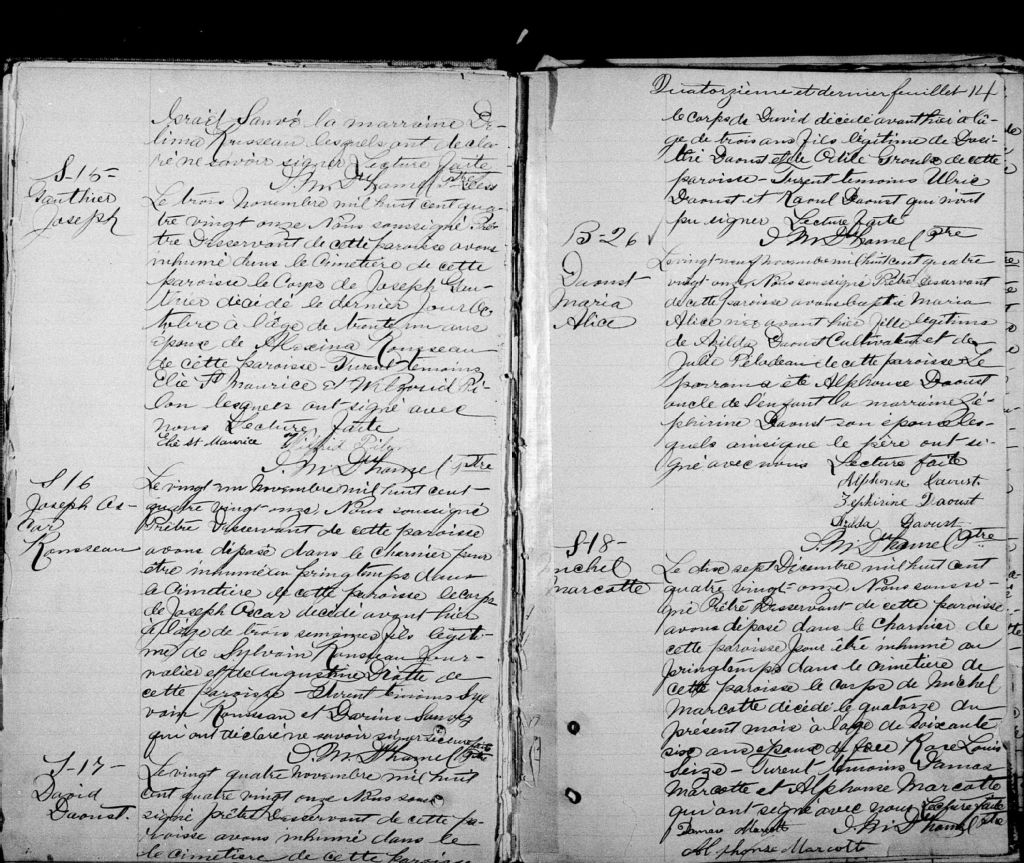 Israël Sauvé la marraine De-
lima Russeau lesquels ont décla-
ré ne savoir signer Lecture faite
J. M. Duhamel Ptre
S-15-
Gauthier
Joseph
Le trois Novembre mil huit cent qua-
tre vingt onze Nous soussigné Prê-
tre Desservant de cette paroisse avons
inhumé dans le Cimetière de cette
paroisse le Corps de Joseph Gau-
thier décédé le dernier Jour Oc-
tobre à l'âge de trente un ans
époux de Alexina Rousseau
de cette paroisse - Furent temoins
Elie St Maurice et Wilfrid Pi-
lon lesquels ont signé avec
nous Lecture faite
Elie St-Maurice Wilfrid Pilon
J. M. Duhamel Ptre
S 16
Joseph Os-
car
Rousseau
Le vingt un Novembre mil huit cent
quatre vingt onze, Nous soussigné
Prêtre Desservant de cette paroisse
avons déposé dans le Charnier pour
être inhumé au printemps dans
le Cimetière de cette paroisse le corps
de Joseph Oscar décédé avant hier
à l'âge de trois semaines fils légiti-
me de Sylvain Rousseau Jour-
nalier et de Augustine
cette paroisse - Furent témoins Syl
vain Rousseau et Darius Sauvé
qui ont déclaré ne savoir signer Lecture faite
J. M. Duhamel Ptre
S-17-
David
Daoust.
Le vingt quatre Novembre mil huit
cent quatre vingt onze Nous sous
signé prêtre Desservant de cette pa-
roisse avons inhumé dans le
le Cimetière de cette paroisse
Quatorzième et dernier feuillet 14
le corps de David décédé avant hier à l'â-
ge de trois ans fils légitime de
Daoust et de Odile Groulx de cette
paroisse - Furent temoins Ulric
Daoust et Raoul Daoust qui n'ont
pu signer Lecture faite
J. M. Duhamel Ptre
B-26
Daoust
Maria
Alice
Le vingt neuf Novembre mil huit cent quatre
vingt onze Nous soussigné Prêtre Desservant
de cette paroisse avons baptisé Maria
Alice née avant hier fille légitime
de Azilda Daoust Cultivateur et de
Julie Pilodeau de cette paroisse - Le
parrain a été Alphonse Daoust
oncle de l'enfant la marraine Zé-
phirine Daoust son épouse les-
quels ainsi que le père ont si-
gné avec nous Lecture faite
Alphonse Daoust
Zéphirine Daoust
Azilda Daoust
J. M. Duhamel Ptre
S-18-
Michel
Marcotte
Le dix sept Décembre mil huit cent
quatre vingt-onze Nous sous si-
gné Prêtre Desservant de cette paroisse
avons déposé dans le Charnier de
cette paroisse pour être inhumé au
printemps dans le cimetière de
cette paroisse le corps de Michel
Marcotte décédé le quatorze du
présent mois à l'âge de soixante
six ans époux de feue Rose Louis
Seize - Furent témoins Damas
Marcotte et Alphonse Marcotte
qui ont signé avec nous Lecture faite
Damas Marcotte J. M. Duhamel Ptre
Alphonse Marcotte